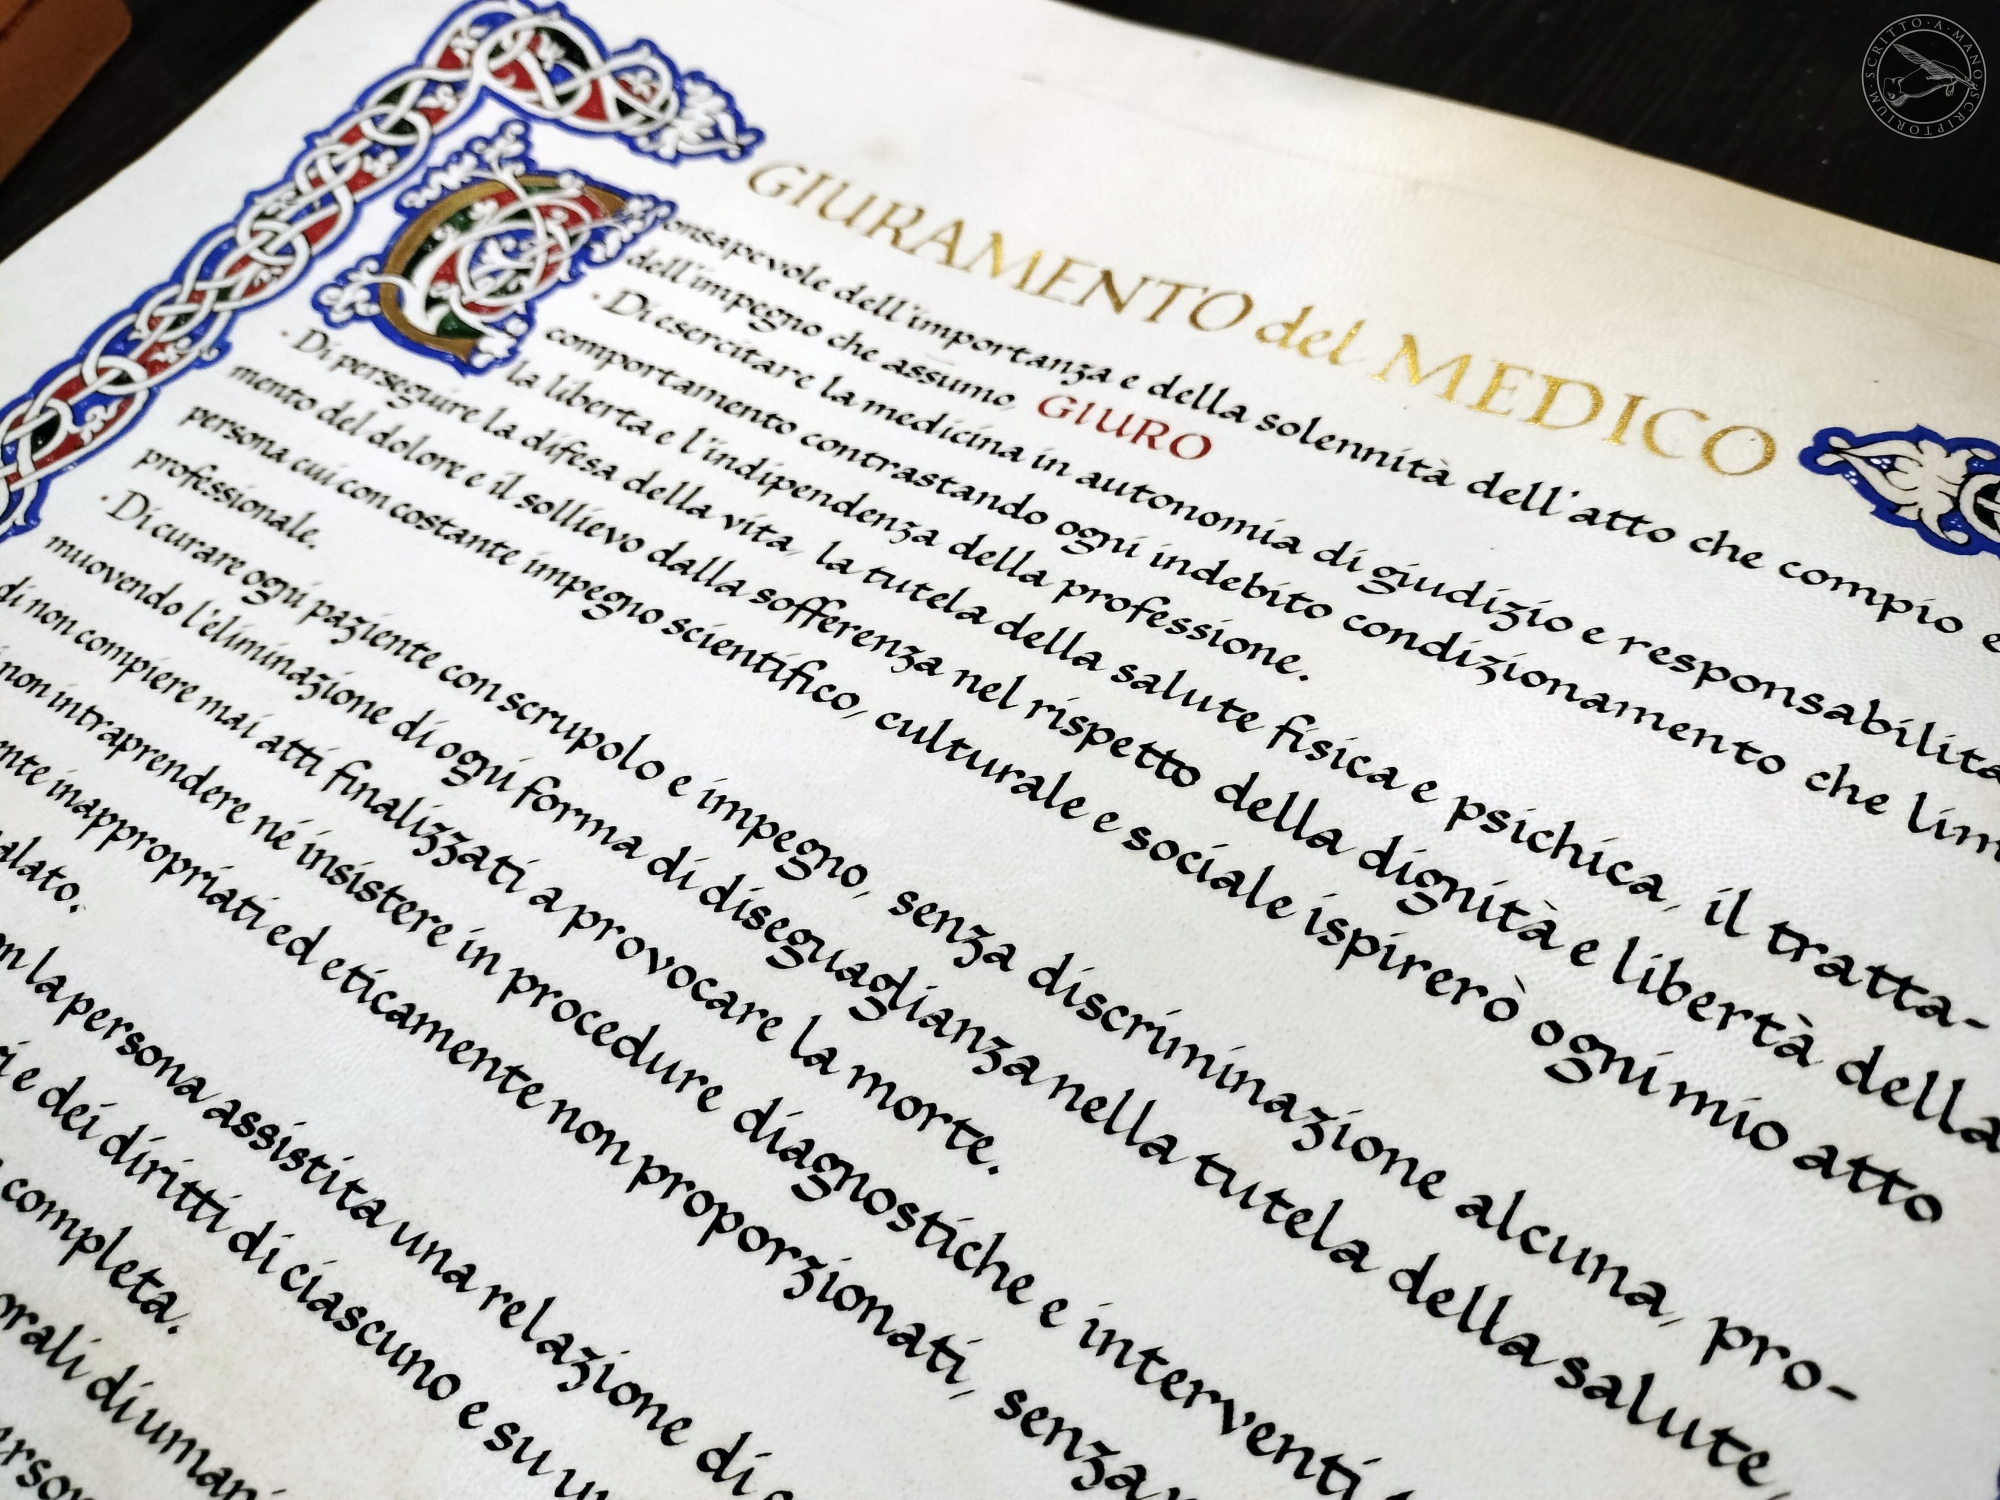 GIURAMENTO del MEDICO
Consapevole dell'importanza e della solennità dell'atto che compio e
dell'impegno che assumo, GIURO
· Di esercitare la medicina in autonomia di giudizio e responsabilità
comportamento contrastando ogni indebito condizionamento che lim
la liberta e l'indipendenza della professione.
· Di perseguire la difesa della vita, la tutela della salute fisica e psichica, il tratta-
mento del dolore e il sollievo dalla sofferenza nel rispetto della dignità e libertà della
persona cui con costante impegno scientifico, culturale e sociale ispirerò ogni mio atto
professionale.
· Di curare ogni paziente con scrupolo e impegno, senza discriminazione alcuna, pro-
muovendo l'eliminazione di ogni forma di diseguaglianza nella tutela della salute,
di non compiere mai atti finalizzati a provocare la morte.
non intraprendere né insistere in procedure diagnostiche e interventi
nte inappropriati ed eticamente non proporzionati, senza
alato.
la persona assistita una relazione di
e dei diritti di ciascuno e su
completa.
orali di umani
SCRITTO · A · MANO · SCRIPTORIUM